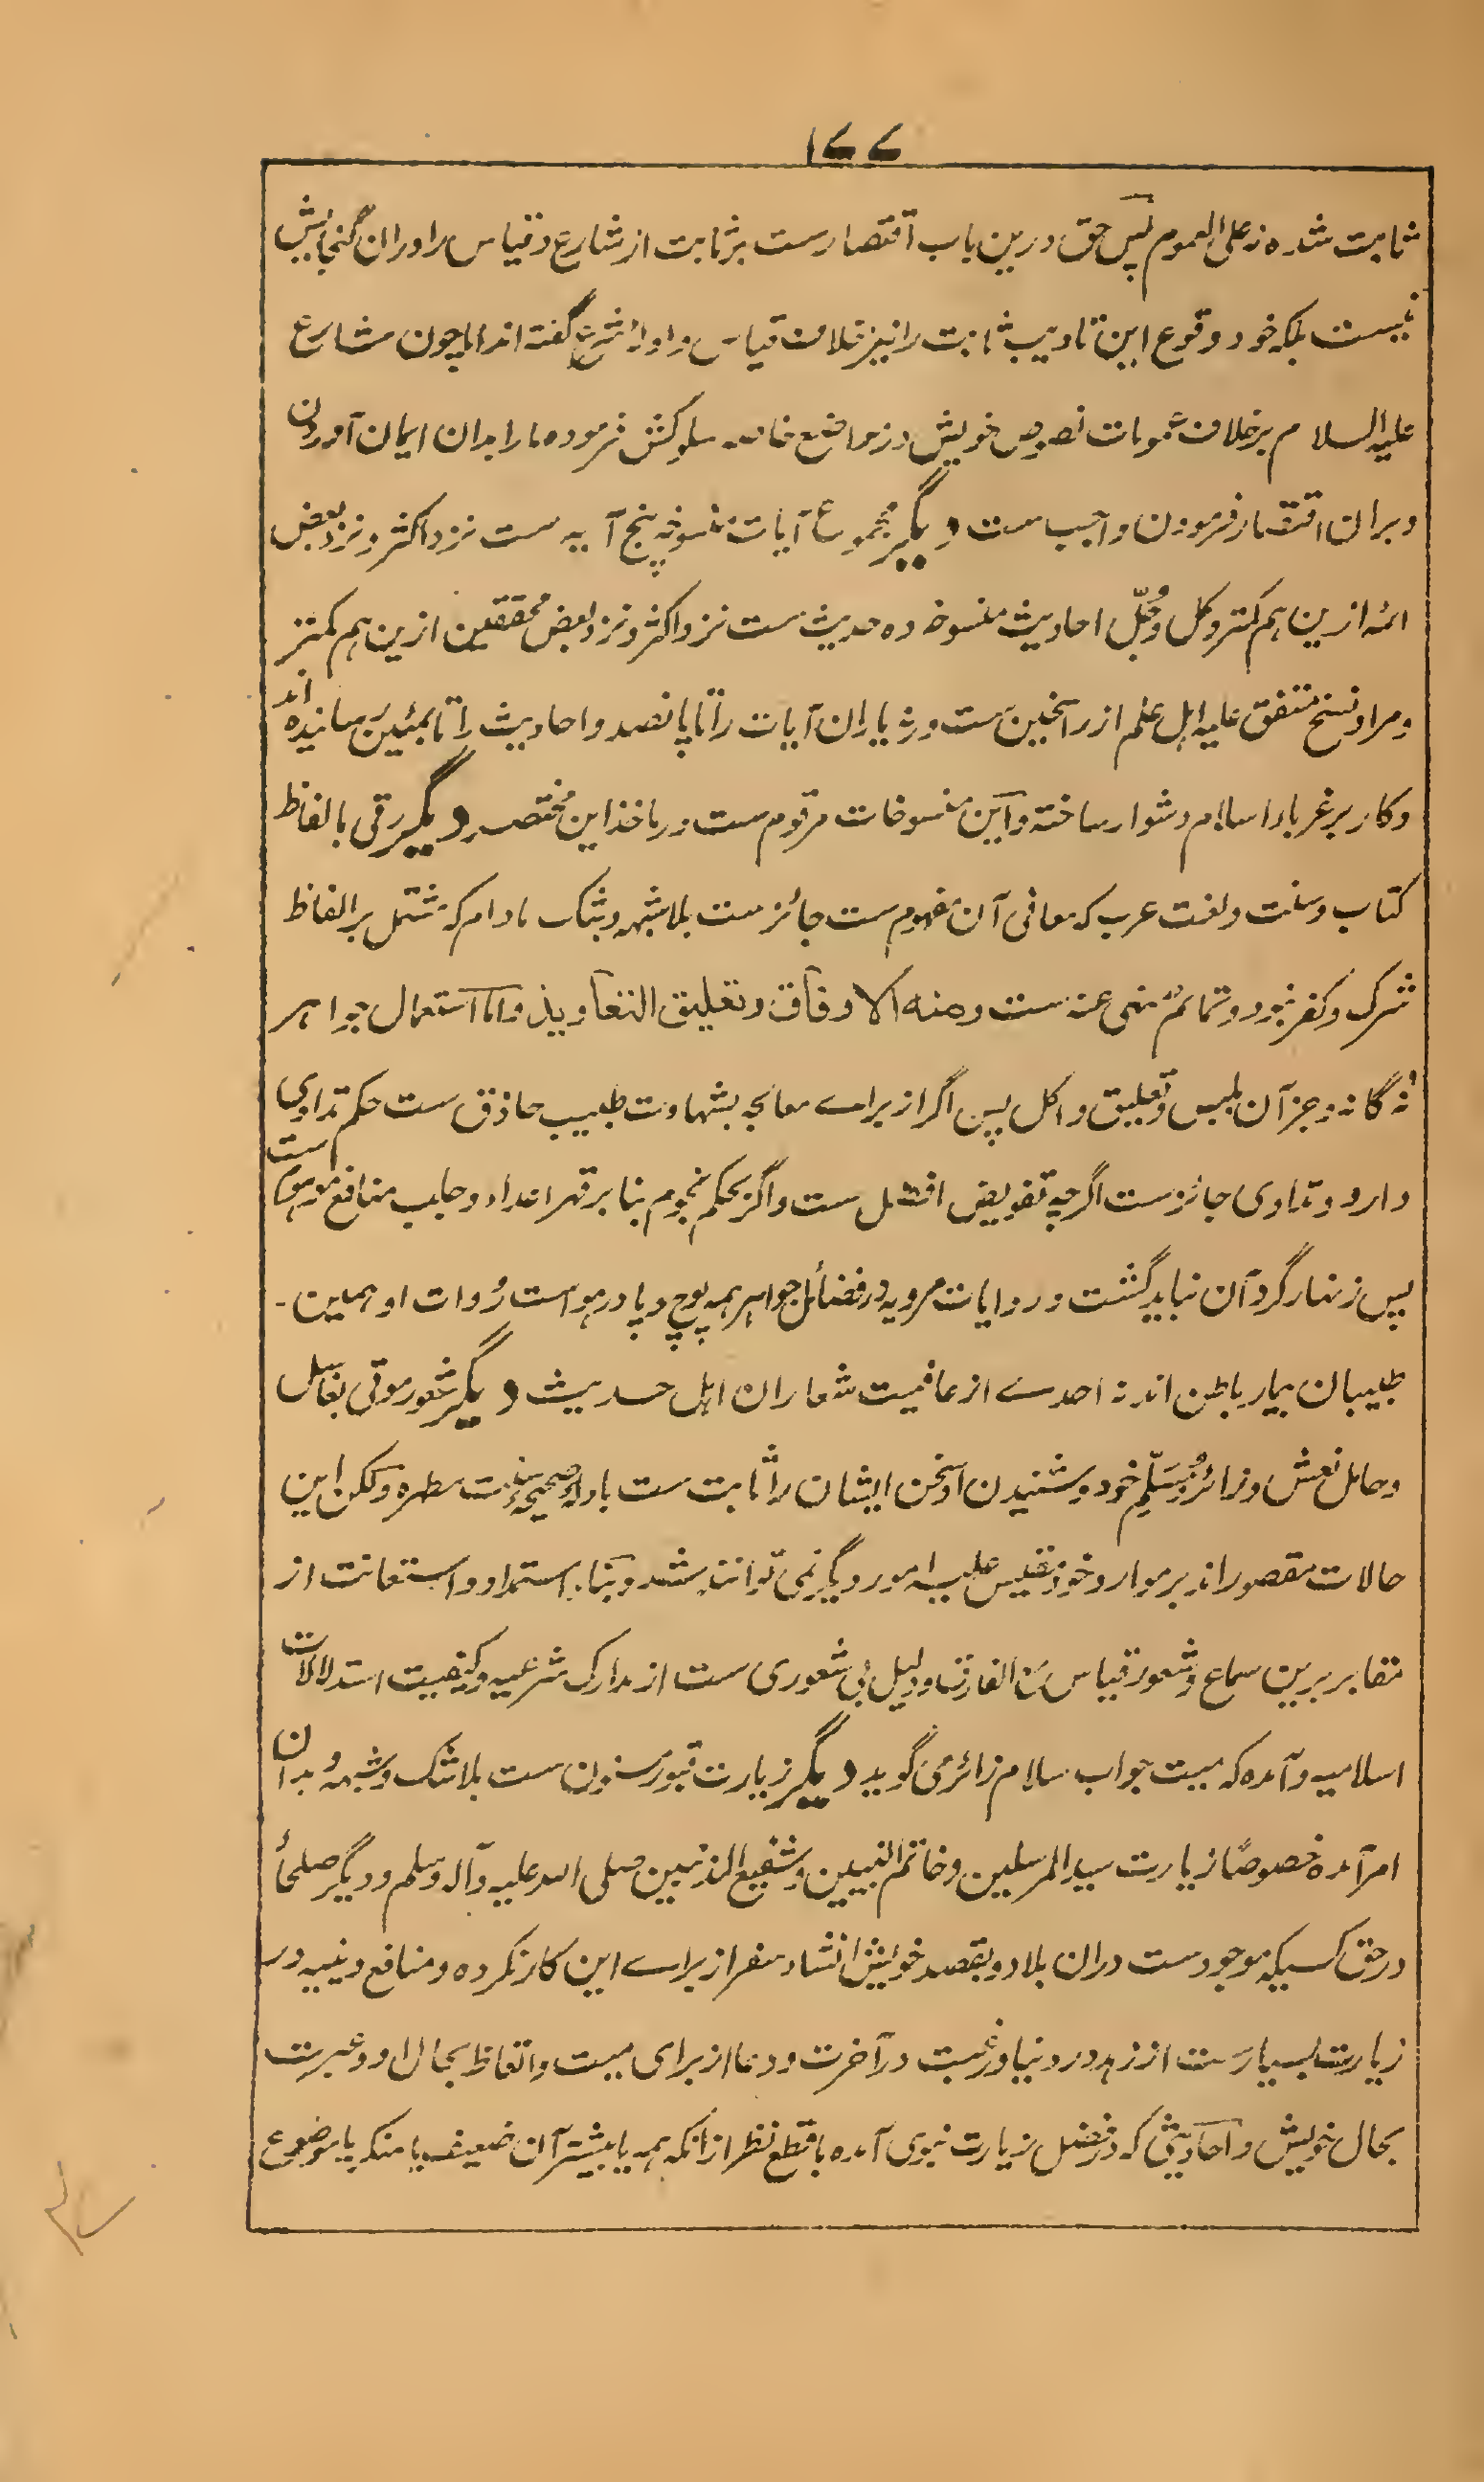 ۱۷۷
ثابت شده نه علی العموم پس حق درین باب اقتصارست بر ثابت از شارع و قیاس را دران گنجایش
نیست بلکه خود وقوع این تادیب ثابت را نیز خلاف قیاس و اوائل شرع گفته اند اما چون شارع
علیه السلام بر خلاف عمومات نصوص خویش در مواضع خاصه سلوکش فرموده ما را بدان ایمان آوردن
و بران اقتصار فرمودن واجب ست دیگر مجموع آیات منسوخه پنج آیه ست نزد اکثر و نزد بعض
ائمه ازین هم کمتر و کل و جُلّ احادیث منسوخه ده حدیث ست نزد اکثر و نزد بعض محققین ازین هم کمتر
و مراد نسخ متفق علیه اهل علم از راسخین ست ورنه یاران آیات را تا پانصد و احادیث را تا بمئین رسانیده اند
و کار بر غرباء اسلام دشوار ساخته و این منسوخات مرقوم ست در ماخذ این مختصر دیگر رقی بالفاظ
کتاب و سنت و لغت عرب که معانی آن مفهوم ست جائز ست بلا شبهه و شک مادام که مشتمل بر الفاظ
شرک و کفر نبود و تمائم منهی عنه ست ومنه الاوفاق وتعلیق التعاویذ و اما استعمال جواهر
نه گانه و جز آن بلبس و تعلیق و اکل پس اگر از برای معالجه بشهادت طبیب حاذق ست حکم تداوی
دارد و تداوی جائز ست اگرچه تفویض افضل ست و اگر بحکم نجوم بنا بر قهر اعداء و جلب منافع موهوم ست
پس زنهار گرد آن نباید گشت و روایات مرویه در فضائل جواهر همه پوچ و پا در هواست رُوات او همین -
طبیبان بیمار باطن اند نه احدے از عافیت شعاران اهل حدیث دیگر شعور موتی بغاسل
و حامل نعش و زائر و مُسَلِّم خود و شنیدن او سخن ایشان را ثابت ست بادلهٔ صحیحهٔ سنت مطهره ولکن این
حالات مقصور اند بر موارد خود مقیس علیه امور دیگر نمی توانند شد و بناء استمداد و استعانت از
مقابر برین سماع و شعور قیاس مع الفارق و دلیل بی شعوری ست از مدارک شرعیه و کیفیت استدلالات
اسلامیه و آمده که میت جواب سلام زائر می گوید دیگر زیارت قبور مسنون ست بلا شک و شبهه و بدان
امر آمده خصوصاً زیارت سید المرسلین و خاتم النبیین و شفیع المذنبین صلی الله علیه و آله وسلم و دیگر صلحاء
در حق کسیکه موجود ست دران بلاد و بقصد خویش انشاء سفر از برای این کار نکرده و منافع دینیه در
زیارت بسیارست از زهد در دنیا و رغبت در آخرت و دعا از برای میت و اتعاظ بحال او و عبرت
بحال خویش و احادیثی که در فضل زیارت نبوی آمده با قطع نظر ازانکه همه یا بیشتر آن ضعیف یا منکر یا موضوع